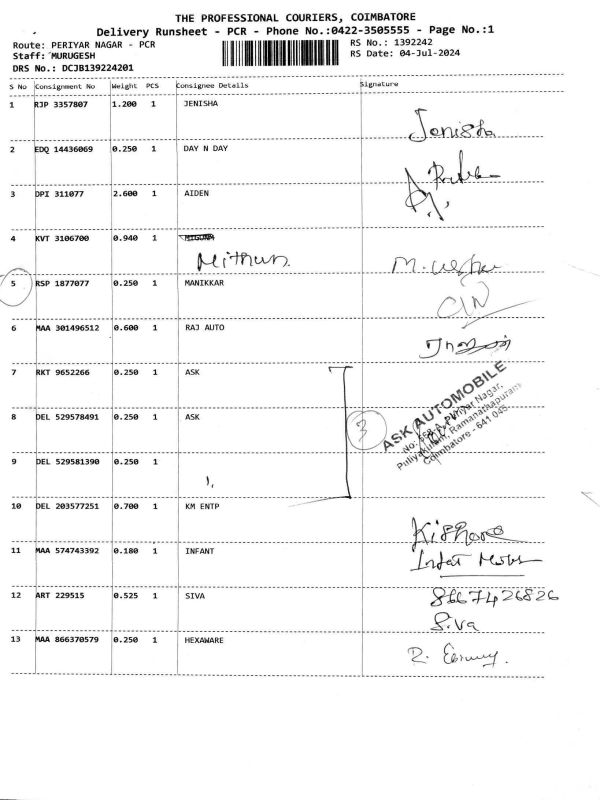 THE PROFESSIONAL COURIERS, COIMBATORE
Delivery Runsheet - PCR - Phone No.:0422-3505555 - Page No.:1
Route: PERIYAR NAGAR - PCR
RS No.: 1392242
Staff: MURUGESH
RS Date: 04-Jul-2024
DRS No.: DCJB139224201
S No Consignment No Weight PCS Consignee Details Signature
1 RJP 3357807 1.200 1 JENISHA
Jenisha
2 EDQ 14436069 0.250 1 DAY N DAY
3 DPI 311077 2.600 1 AIDEN
4 KVT 3106700 0.940 1
Mithun
5 RSP 1877077 0.250 1 MANIKKAR
6 MAA 301496512 0.600 1 RAJ AUTO
7 RKT 9652266 0.250 1 ASK
8 DEL 529578491 0.250 1 ASK
3
ASK AUTOMOBILE
No: 658-A, Periyar Nagar,
Puliyakulam, Ramanathapuram
Coimbatore - 641 045.
9 DEL 529581390 0.250 1
10 DEL 203577251 0.700 1 KM ENTP
Kishore
11 MAA 574743392 0.180 1 INFANT
12 ART 229515 0.525 1 SIVA
8667426826
Siva
13 MAA 866370579 0.250 1 HEXAWARE